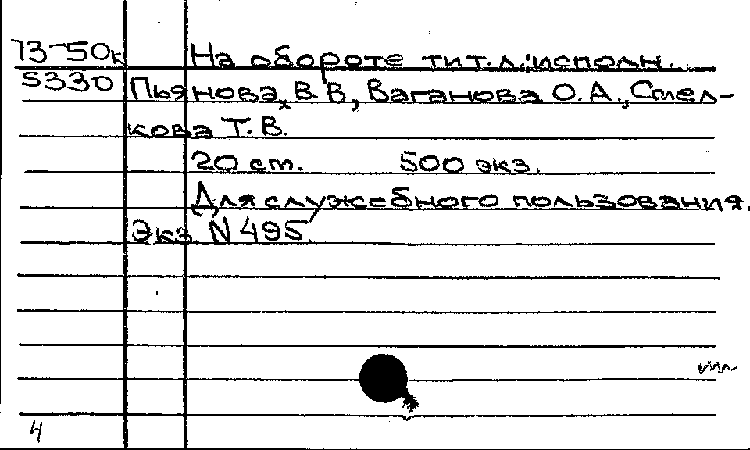 73-50к На обороте тит.л.:исполн.
5330 Пьянова В.В., Ваганова О.А., Смел-
кова Т.В.
20 ст. 500 экз.
Для служебного пользования.
Экз N 495
4